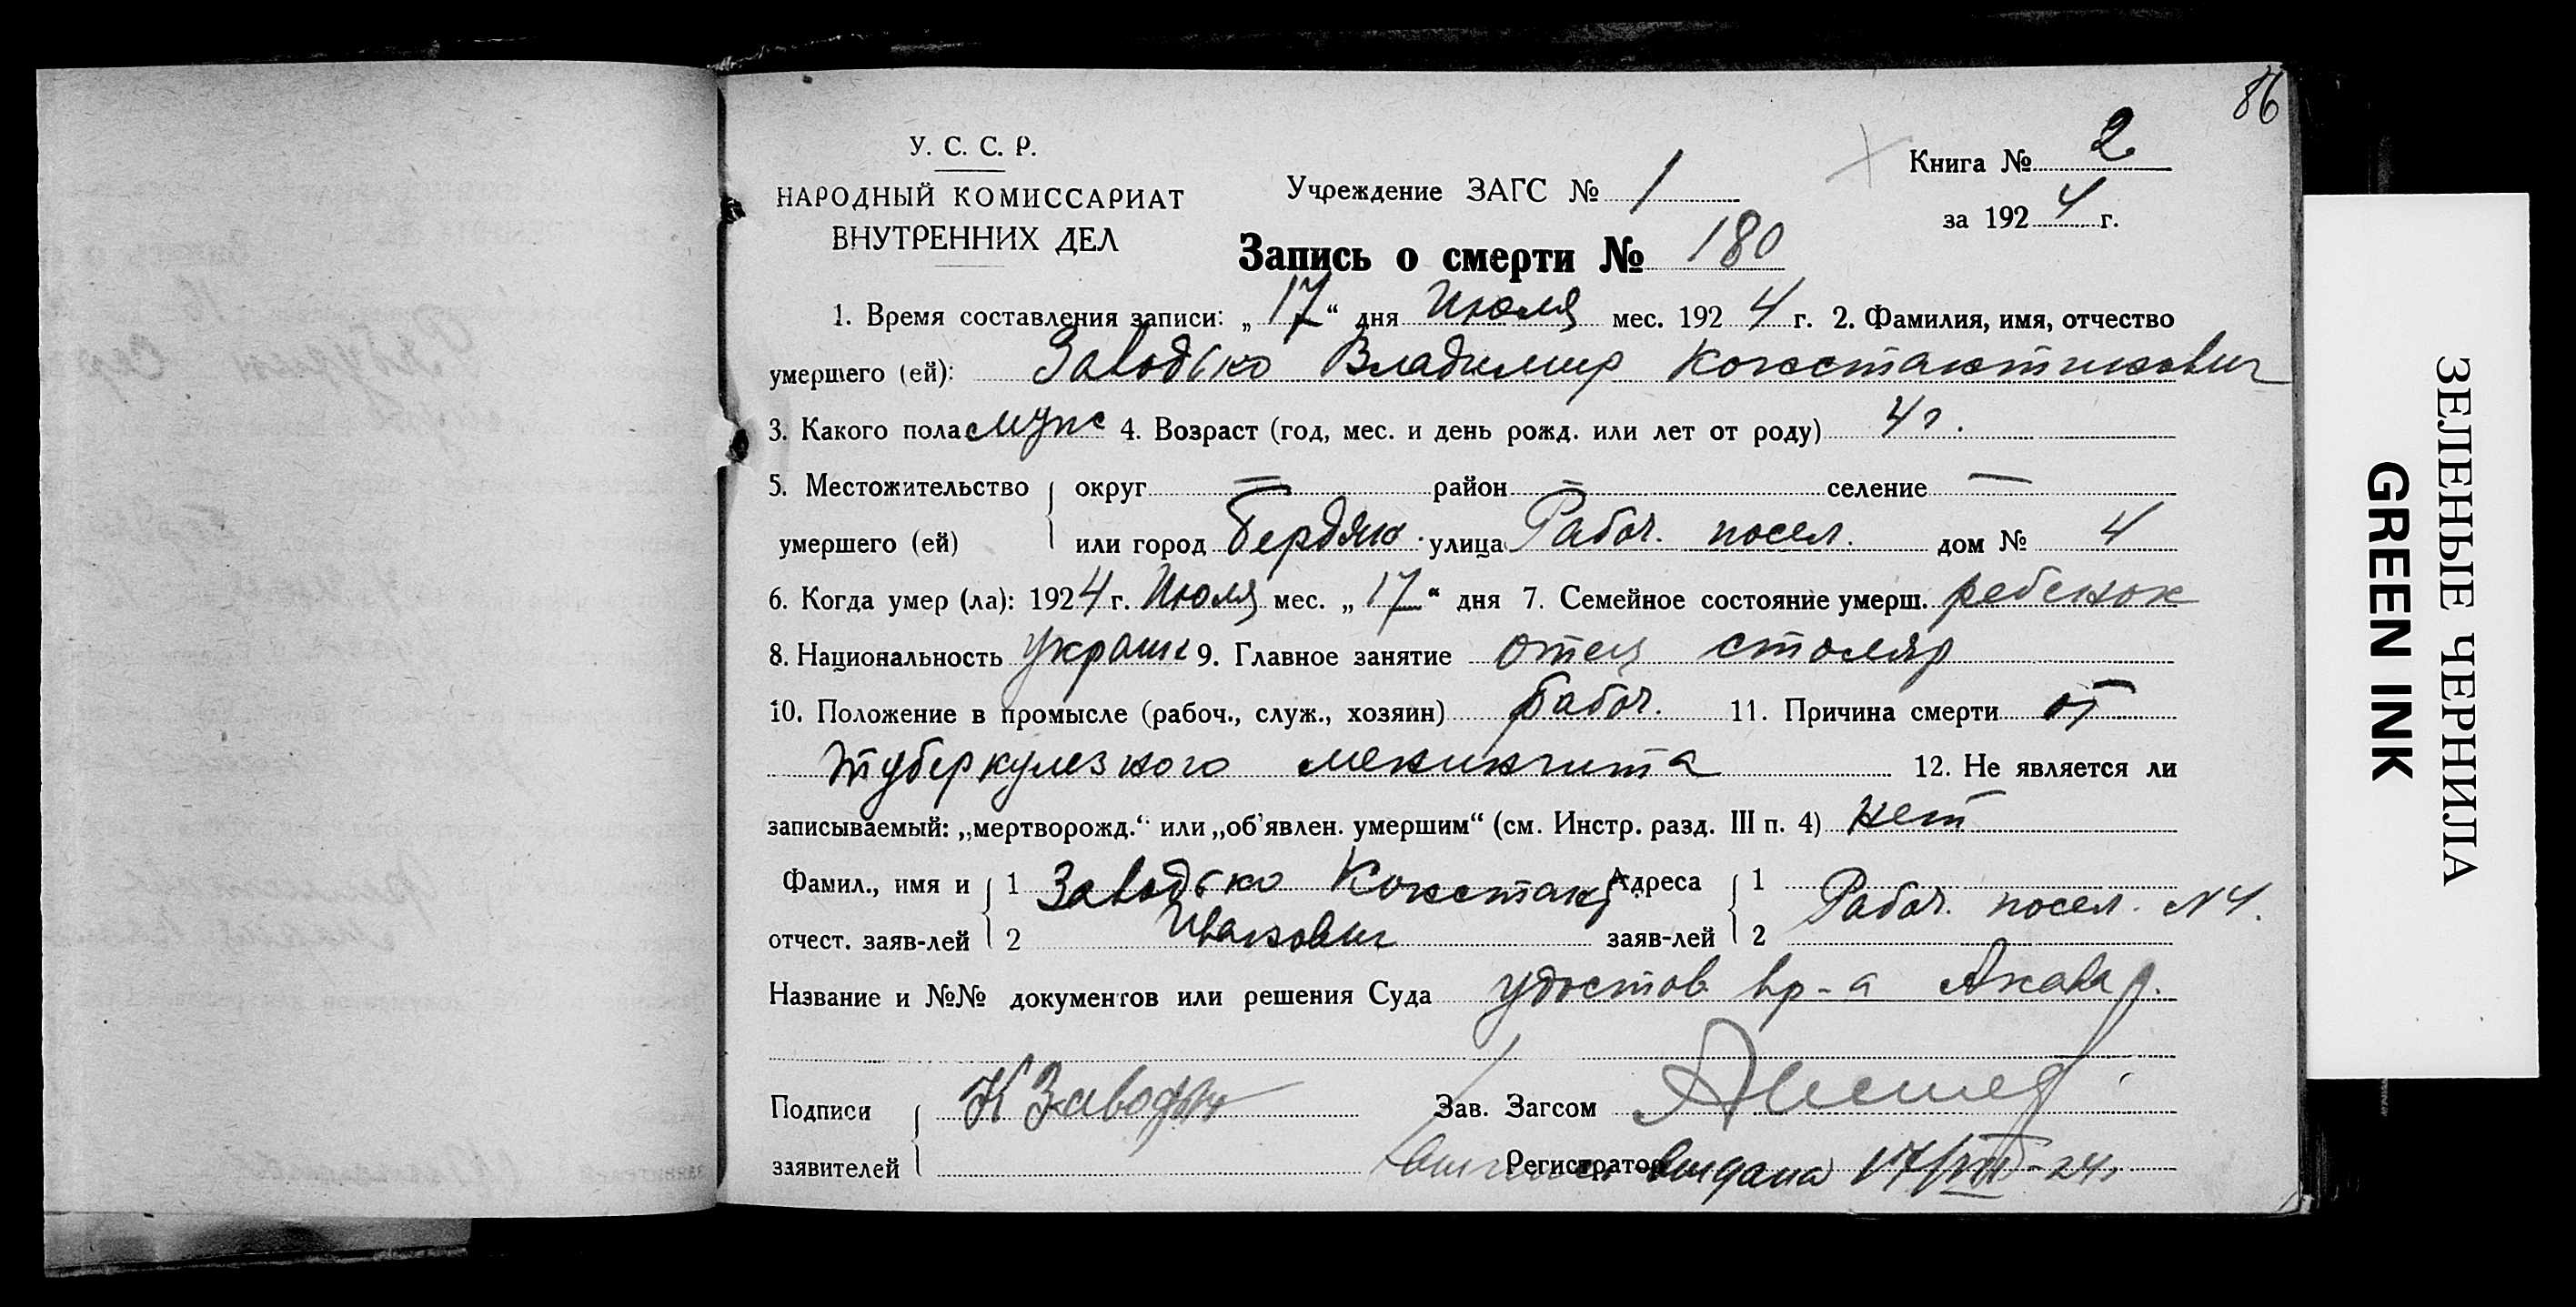 86
У. С. С. Р.
НАРОДНЫЙ КОМИССАРИАТ
ВНУТРЕННИХ ДЕЛ
Учреждение ЗАГС № 1
Книга № 2
за 1924 г.
Запись о смерти № 180
1. Время составления записи: „17“ дня Июля мес. 1924 г. 2. Фамилия, имя, отчество
умершего (ей): Заводько Владимир Константинович
3. Какого пола муж 4. Возраст (год, мес. и день рожд. или лет от роду) 4 г.
5. Местожительство округ — район — селение —
умершего (ей) или город Бердянс. улица Рабоч. посел. дом № 4
6. Когда умер (ла): 1924 г. Июля мес. „17“ дня 7. Семейное состояние умерш. ребенок
8. Национальность украин 9. Главное занятие отец столяр
10. Положение в промысле (рабоч., служ., хозяин) рабоч. 11. Причина смерти от
туберкулезного менингита 12. Не является ли
записываемый: „мертворожд.“ или „об'явлен. умершим“ (см. Инстр. разд. III п. 4) нет
Фамил., имя и 1 Заводько Констант Адреса 1
отчест. заяв-лей 2 Иванович заяв-лей 2 Рабоч. посел. N4.
Название и №№ документов или решения Суда удостов вр-а
Подписи К Заводько Зав. Загсом
заявителей Регистратор выдана 17/VII-24
ЗЕЛЕНЫЕ ЧЕРНИЛА
GREEN INK